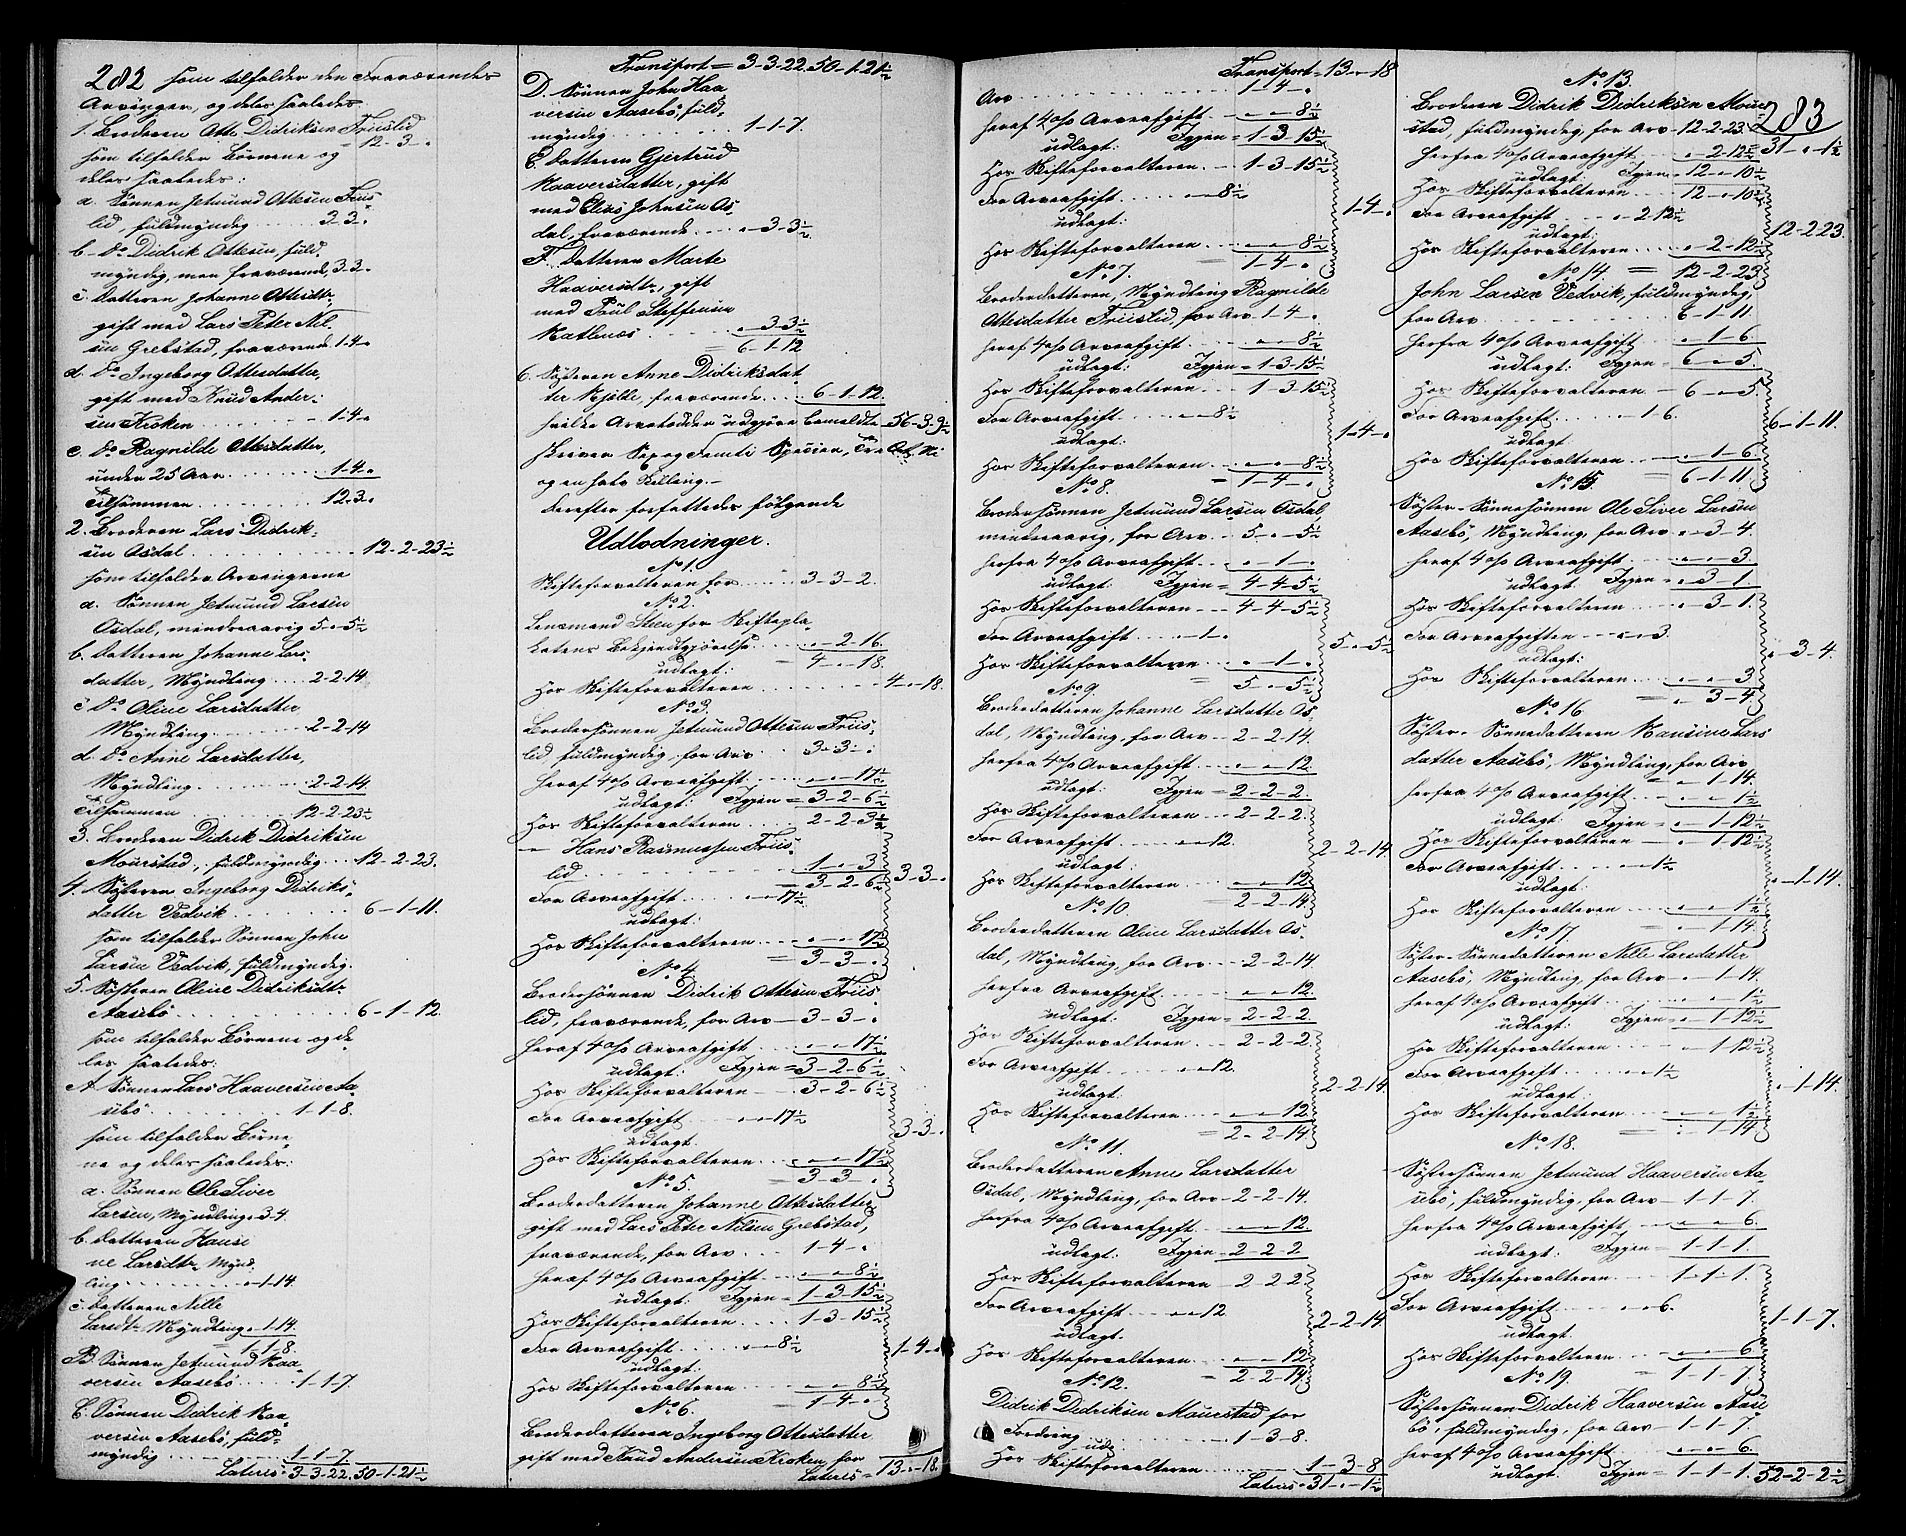 282 som tilfalder den Fraværendes
Arvinger, og deles saaledes:
1. Broderen Otte Didriksen Friislid 12-3-"
som tilfalder Børnene og
deles saaledes:
a. Sønnen Jetmund Ottesen Friis-
lid, fuldmyndig 3-3-"
b. Do Didrik Ottesen, fuld-
myndig, men fraværende, 3-3-"
c. Datteren Johanne Ottesdtr.
gift med Lars Peter Nil-
sen Grebstad, fraværende 1-4-"
d. Do Ingeborg Ottesdatter,
gift med Knud Ander-
sen Kroken 1-4-"
e. Do Ragnilde Ottesdatter,
under 25 Aar 1-4-"
Tilsammen 12-3-"
2. Broderen Lars Didrik-
sen Osdal 12-2-23½
som tilfalder Arvingerne
a. Sønnen Jetmund Larsen
Osdal, mindreaarig 5-"-5½
b. Datteren Johanne Lars-
datter, Myndling 2-2-14
c. Do Oline Larsdatter
Myndling 2-2-14
d. Do Anne Larsdatter,
Myndling 2-2-14
Tilsammen 12-2-23½
3. Broderen Didrik Didriksen
Mourstad, fuldmyndig 12-2-23.
4. Søsteren Ingeborg Didriks-
datter Vedvik 6-1-11.
som tilfalder Sønnen John
Larsen Vedvik, fuldmyndig.
5. Søsteren Oline Didriksdtr.
Aasebø 6-1-12
som tilfalder Børnene og de-
les saaledes:
A. Sønnen Lars Haaversen Aa-
sebø 1-1-8.
som tilfalder Børne-
ne og deles saaledes:
a. Sønnen Ole Siver
Larsen, Myndling "-3-4
b. Datteren Hansi-
ne Larsdtr. Mynd-
ling "-1-14.
c. Datteren Nille
Larsdtr. Myndling "-1-14
= 1-1-8.
B. Sønnen Jetmund Haa-
versen Aasebø 1-1-7
C. Sønnen Didrik Haa-
versen Aasebø, fuld-
myndig 1-1-7
Lateris 3-3-22. 50-1-21½
Transport = 3-3-22. 50-1-21½
D. Sønnen John Haa-
versen Aasebø, fuld-
myndig 1-1-7.
E. Datteren Gjertrud
Haaversdatter, gift
med Elias Johnsen Os-
dal, fraværende "-3-3½
F. Datteren Marte
Haaversdtr., gift
med Paul Steffensen
Ratlenæs "-3-3½
= 6-1-12
6. Søsteren Anne Didriksdat-
ter Kjølle, fraværende 6-1-12.
hvilke Arvelodder udgjøre bemeldte 56-3-9½
skriver Sex og Femti Species, Tre Ort, Ni
og en halv Skilling.-
Derefter forfattedes følgende
Udlodninger.
No 1.
Skifteforvalteren for 3-3-2.
No 2.
Lensmand Steen for Skiftepla-
katens Bekjendtgjørelse "-2-16.
udlagt: = 4-"-18.
Hos Skifteforvalteren 4-"-18.
No 3.
Brodersønnen Jetmund Ottesen Friis-
lid fuldmyndig, for Arv 3-3-"
heraf 4 o/o Arveafgift "-"-17½
udlagt: Igjen = 3-2-6½
Hos Skifteforvalteren 2-2-3½
— Hans Rasmussen Friis-
lid 1-"-3
= 3-2-6½ 3-3-"
For Arveafgift "-"-17½
udlagt:
Hos Skifteforvalteren "-"-17½
= 3-3-"
No 4.
Brodersønnen Didrik Ottesen Friis-
lid, fraværende, for Arv 3-3-"
heraf 4 o/o Arveafgift "-"-17½
udlagt: Igjen = 3-2-6½
Hos Skifteforvalteren 3-2-6½
For Arveafgift "-"-17½
3-3-"
udlagt.
Hos Skifteforvalteren "-"-17½
= 3-3-"
No 5.
Broderdatteren Johanne Ottesdatter
gift med Lars Peter Nilsen Grebstad,
fraværende, for Arv 1-4-"
heraf 4 o/o Arveafgift "-"-8½
udlagt: Igjen = 1-3-15½
Hos Skifteforvalteren 1-3-15½
For Arveafgift "-"-8½ 1-4-"
udlagt:
Hos Skifteforvalteren "-"-8½
= 1-4-"
No 6.
Broderdatteren Ingeborg Ottesdatter
gift med Knud Andersen Kroken, for
Lateris = 13-"-18.
Transport = 13-"-18
Arv 1-4-"
heraf 4 o/o Arveafgift "-"-8½
udlagt: Igjen = 1-3-15½
Hos Skifteforvalteren 1-3-15½
For Arveafgift "-"-8½
1-4-"
udlagt:
Hos Skifteforvalteren "-"-8½
= 1-4-"
No 7.
Broderdatteren, Myndling Ragnilde
Ottesdatter Friislid, for Arv 1-4-"
heraf 4 o/o Arveafgift "-"-8½
udlagt: Igjen = 1-3-15½
Hos Skifteforvalteren 1-3-15½
For Arveafgift "-"-8½
1-4-"
udlagt:
Hos Skifteforvalteren "-"-8½
= 1-4-"
No 8.
Brodersønnen Jetmund Larsen Osdal,
mindreaarig, for Arv 5-"-5½
herfra 4 o/o Arveafgift "-1-"
udlagt: Igjen = 4-4-5½
Hos Skifteforvalteren 4-4-5½
For Arveafgift "-1-"
5-"-5½
Hos Skifteforvalteren "-1-"
= 5-"-5½
No 9.
Broderdatteren Johanne Larsdatter Os-
dal, Myndling, for Arv 2-2-14.
herfra 4 o/o Arveafgift "-"-12.
udlagt: Igjen = 2-2-2.
Hos Skifteforvalteren 2-2-2.
For Arveafgift "-"-12.
2-2-14.
udlagt:
Hos Skifteforvalteren "-"-12
= 2-2-14
No 10.
Broderdatteren Oline Larsdatter Os-
dal, Myndling, for Arv 2-2-14.
herfra Arveafgift "-"-12.
udlagt: Igjen = 2-2-2
Hos Skifteforvalteren 2-2-2
For Arveafgift "-"-12.
2-2-14.
udlagt:
Hos Skifteforvalteren "-"-12
= 2-2-14
No 11.
Broderdatteren Anne Larsdatter
Osdal, Myndling, for Arv 2-2-14.
herfra 4 o/o Arveafgift "-"-12.
udlagt: Igjen = 2-2-2
Hos Skifteforvalteren 2-2-2
For Arveafgift "-"-12
2-2-14
udlagt.
Hos Skifteforvalteren "-"-12
= 2-2-14
No 12.
Didrik Didriksen Mourstad for
Fordring 1-3-8.
udl:
Hos Skifteforvalteren 1-3-8
Lateris = 31-"-1½
No 13.
283
Broderen Didrik Didriksen Mour-
stad, fuldmyndig, for Arv 12-2-23.
31-"-1½
herfra 4 o/o Arveafgift "-2-12½
udlagt: Igjen = 12-"-10½
Hos Skifteforvalteren 12-"-10½
For Arveafgift "-2-12½
12-2-23.
udlagt:
Hos Skifteforvalteren "-2-12½
= 12-2-23
No 14.
John Larsen Vedvik, fuldmyndig,
for Arv 6-1-11
herfra 4 o/o Arveafgift "-1-6
udlagt: Igjen = 6-"-5.
Hos Skifteforvalteren 6-"-5.
For Arveafgift "-1-6.
6-1-11.
udlagt
Hos Skifteforvalteren "-1-6
= 6-1-11.
No 15.
Søster-Sønnesønnen Ole Siver Larsen
Aasebø, Myndling, for Arv "-3-4.
heraf 4 o/o Arveafgift "-"-3
udlagt: Igjen = "-3-1
Hos Skifteforvalteren "-3-1.
For Arveafgiften "-"-3.
"-3-4.
udlagt:
Hos Skifteforvalteren "-"-3
= "-3-4
No 16.
Søster-Sønnedatteren Hansine Lars-
datter Aasebø, Myndling, for Arv
"-1-14.
herfra 4 o/o Arveafgift "-"-1½
udlagt: Igjen = "-1-12½
Hos Skifteforvalteren "-1-12½
For Arveafgift "-"-1½
"-1-14.
udlagt:
Hos Skifteforvalteren "-"-1½
= "-1-14.
No 17.
Søster-Sønnedatteren Nille Larsdatter
Aasebø, Myndling, for Arv "-1-14.
heraf 4 o/o Arveafgift "-"-1½
udlagt: Igjen = "-1-12½
Hos Skifteforvalteren "-1-12½
For Arveafgift "-"-1½
"-1-14.
udlagt:
Hos Skifteforvalteren "-"-1½
= "-1-14
No 18.
Søstersønnen Jetmund Haaversen Aa-
sebø, fuldmyndig, for Arv 1-1-7.
herfra 4 o/o Arveafgift "-"-6.
udlagt: Igjen = 1-1-1.
Hos Skifteforvalteren 1-1-1.
For Arveafgift "-"-6.
1-1-7.
udlagt.
Hos Skifteforvalteren "-"-6
= 1-1-7.
No 19.
Søstersønnen Didrik Haaversen Aase-
bø, fuldmyndig, for Arv 1-1-7.
heraf 4 o/o Arveafgift "-"-6.
udlagt: Igjen = 1-1-1. 52-2-2½